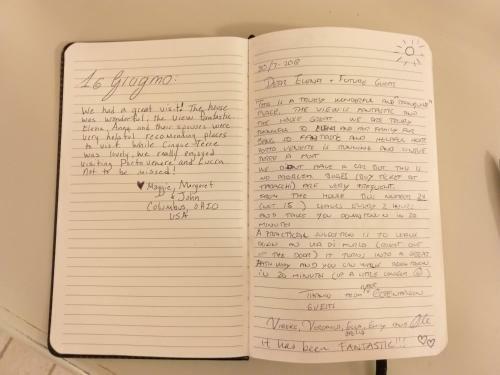 16 Giugno:
We had a great visit! The house
was wonderful, the view fantastic.
Elena, Anna and their spouses were
very helpful recommending places
to visit. While Cinque Terre
was lovely, we really enjoyed
visiting Porto Venere and Lucca.
Not to be missed!
♥ Maggie, Margaret
& John
Columbus, OHIO
USA
20/7-2018
DEAR ELENA + FUTURE GUESTS
THIS IS A TRULY WONDERFUL AND TRANQUIL
PLACE. THE VIEW IS FANTASTIC AND
THE HOUSE GREAT. WE ARE TRULY
THANKFUL TO ELENA AND HIS FAMILY FOR
BEING SO FANTASTIC AND HELPFUL HOSTS
PORTO VENERE IS STUNNING AND UNIQUE
WE DIDN'T HAVE A CAR BUT THIS IS
NO PROBLEM. BUSES (BUY TICKET AT
TABACCHI) ARE VERY FREQUENT.
FROM THE HOUSE BUS NUMBER
LEAVES EVERY 2 HOURS
AND TAKES YOU DOWNTOWN IN 20
MINUTES
A PRACTICAL SUGGESTION IS TO WALK
DOWN ON VIA DI (RIGHT OUT
OF THE DOOR) IT TURNS INTO A GREAT
PATH WAY AND YOU CAN WALK DOWNTOWN
IN 20 MINUTES (UP A LITTLE LONGER ☺)
THANKS FROM
GUESTS
It has been FANTASTIC!!! ♡♡